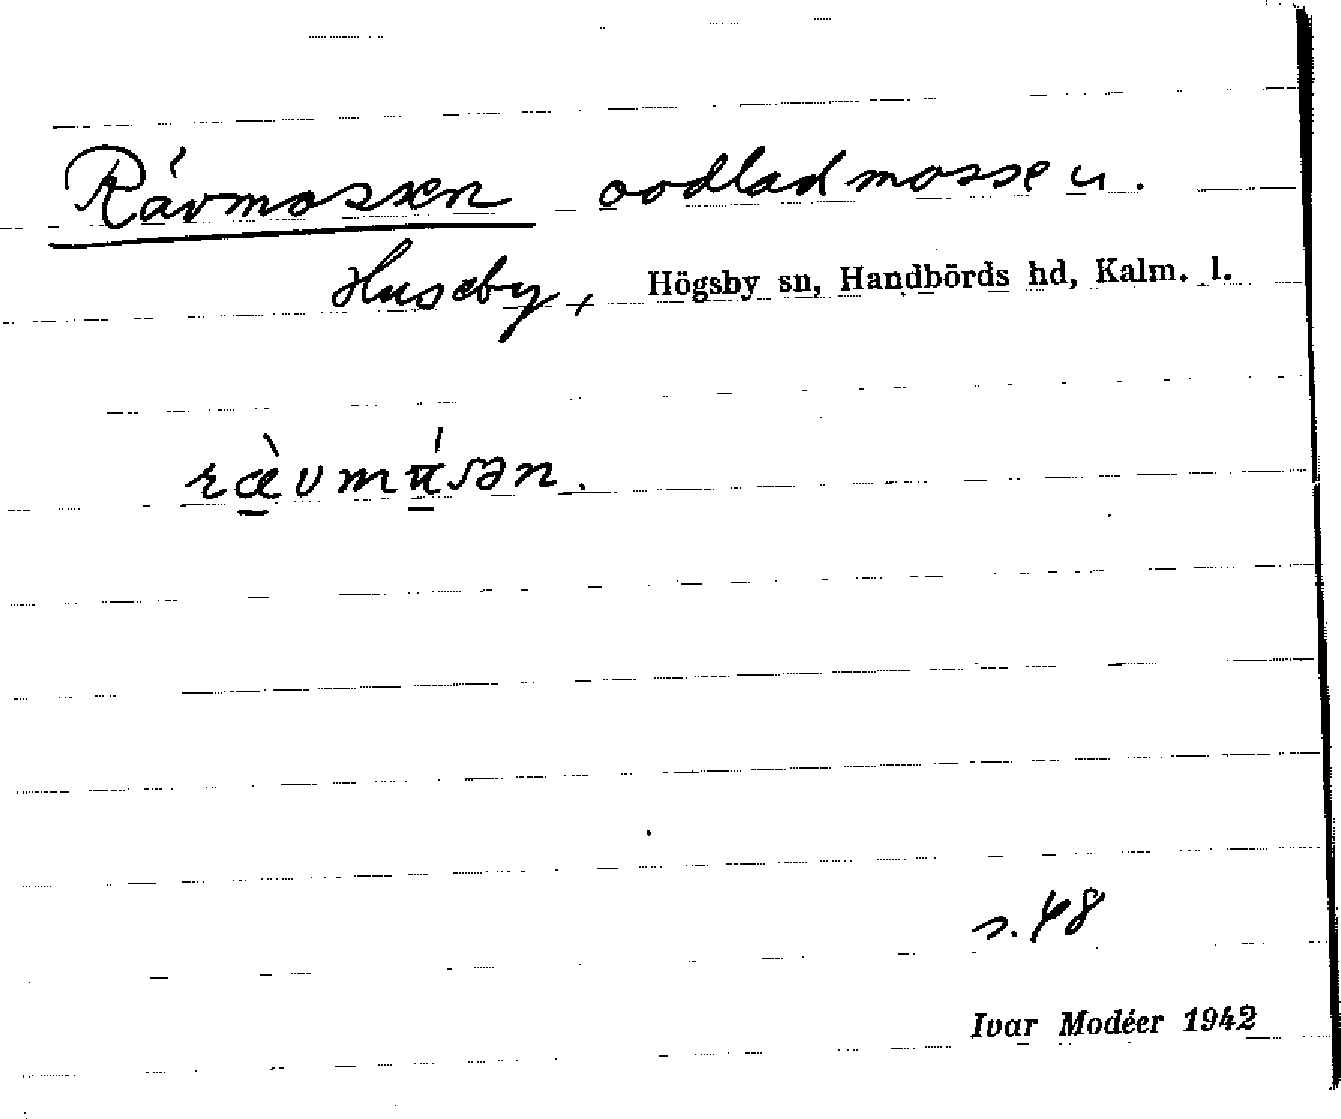 Rävmossen oodlad mosse u.
Huseby, Högsby sn, Handbörds hd, Kalm. l.
ræ̀vmúsən.
s. 48
Ivar Modéer 1942